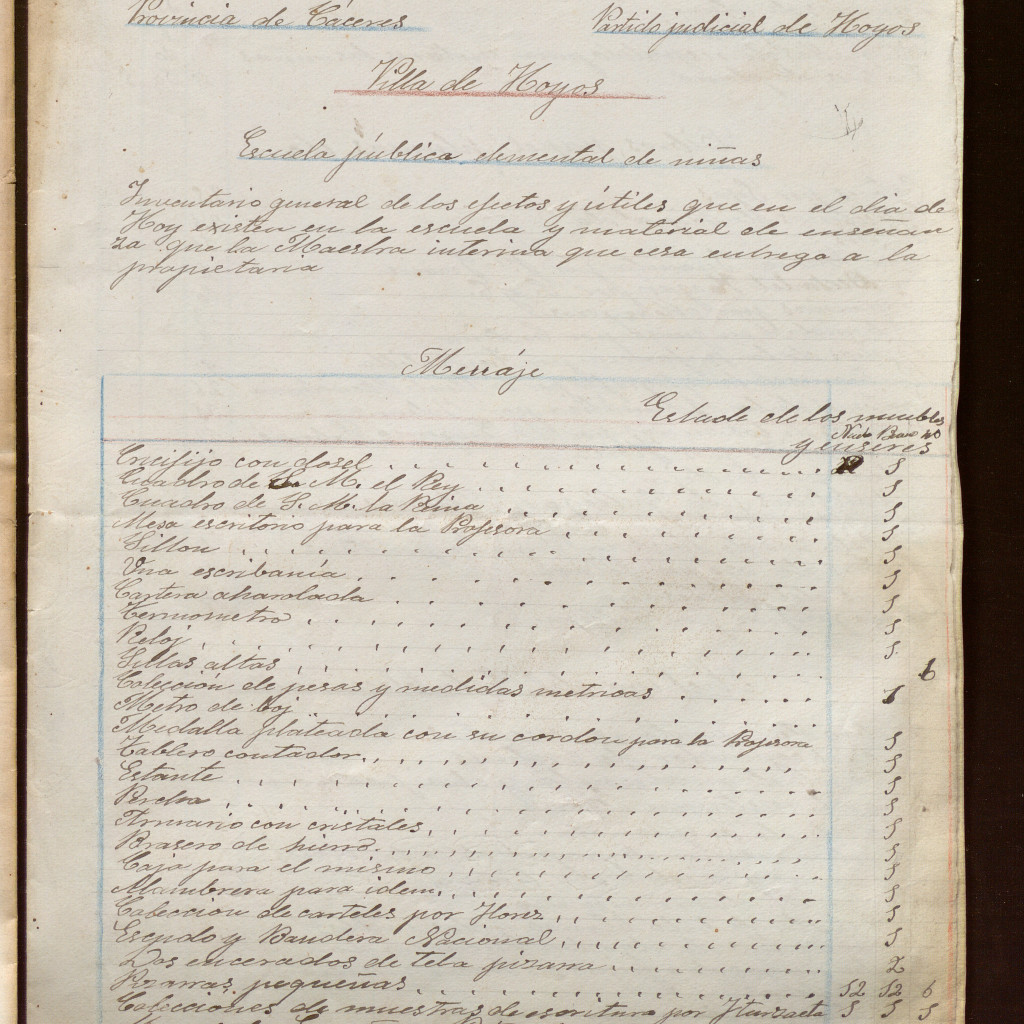 Provincia de Cáceres Partido judicial de Hoyos
Villa de Hoyos
Escuela pública elemental de niñas
Inventario general de los efectos y útiles que en el dia de
Hoy existen en la escuela y material de enseñan
za que la Maestra interina que cesa entrega a la
propietaria
Menáje
Estado de los muebles
y enseres
Crucifijo con dosel
Cuadro de S. M. el Rey
Cuadro de S. M. la Reina
Mesa escritorio para la Profesora
Sillon
Una escribanía
Cartera acharolada
Termometro
Reloj
Sillas altas 6
Colección de pesas y medidas metricas
Metro de boj
Medalla plateada con su cordon para la Profesora
Tablero contador
Estante
Percha
Armario con cristales
Brasero de hierro
Caja para el mismo
Alambrera para idem
Coleccion de carteles por Florez
Escudo y Bandera Nacional
Dos encerados de tela pizarra 2
Pizarras pequeñas 12 12 6
Colecciones de muestras de escritura por Iturzaeta